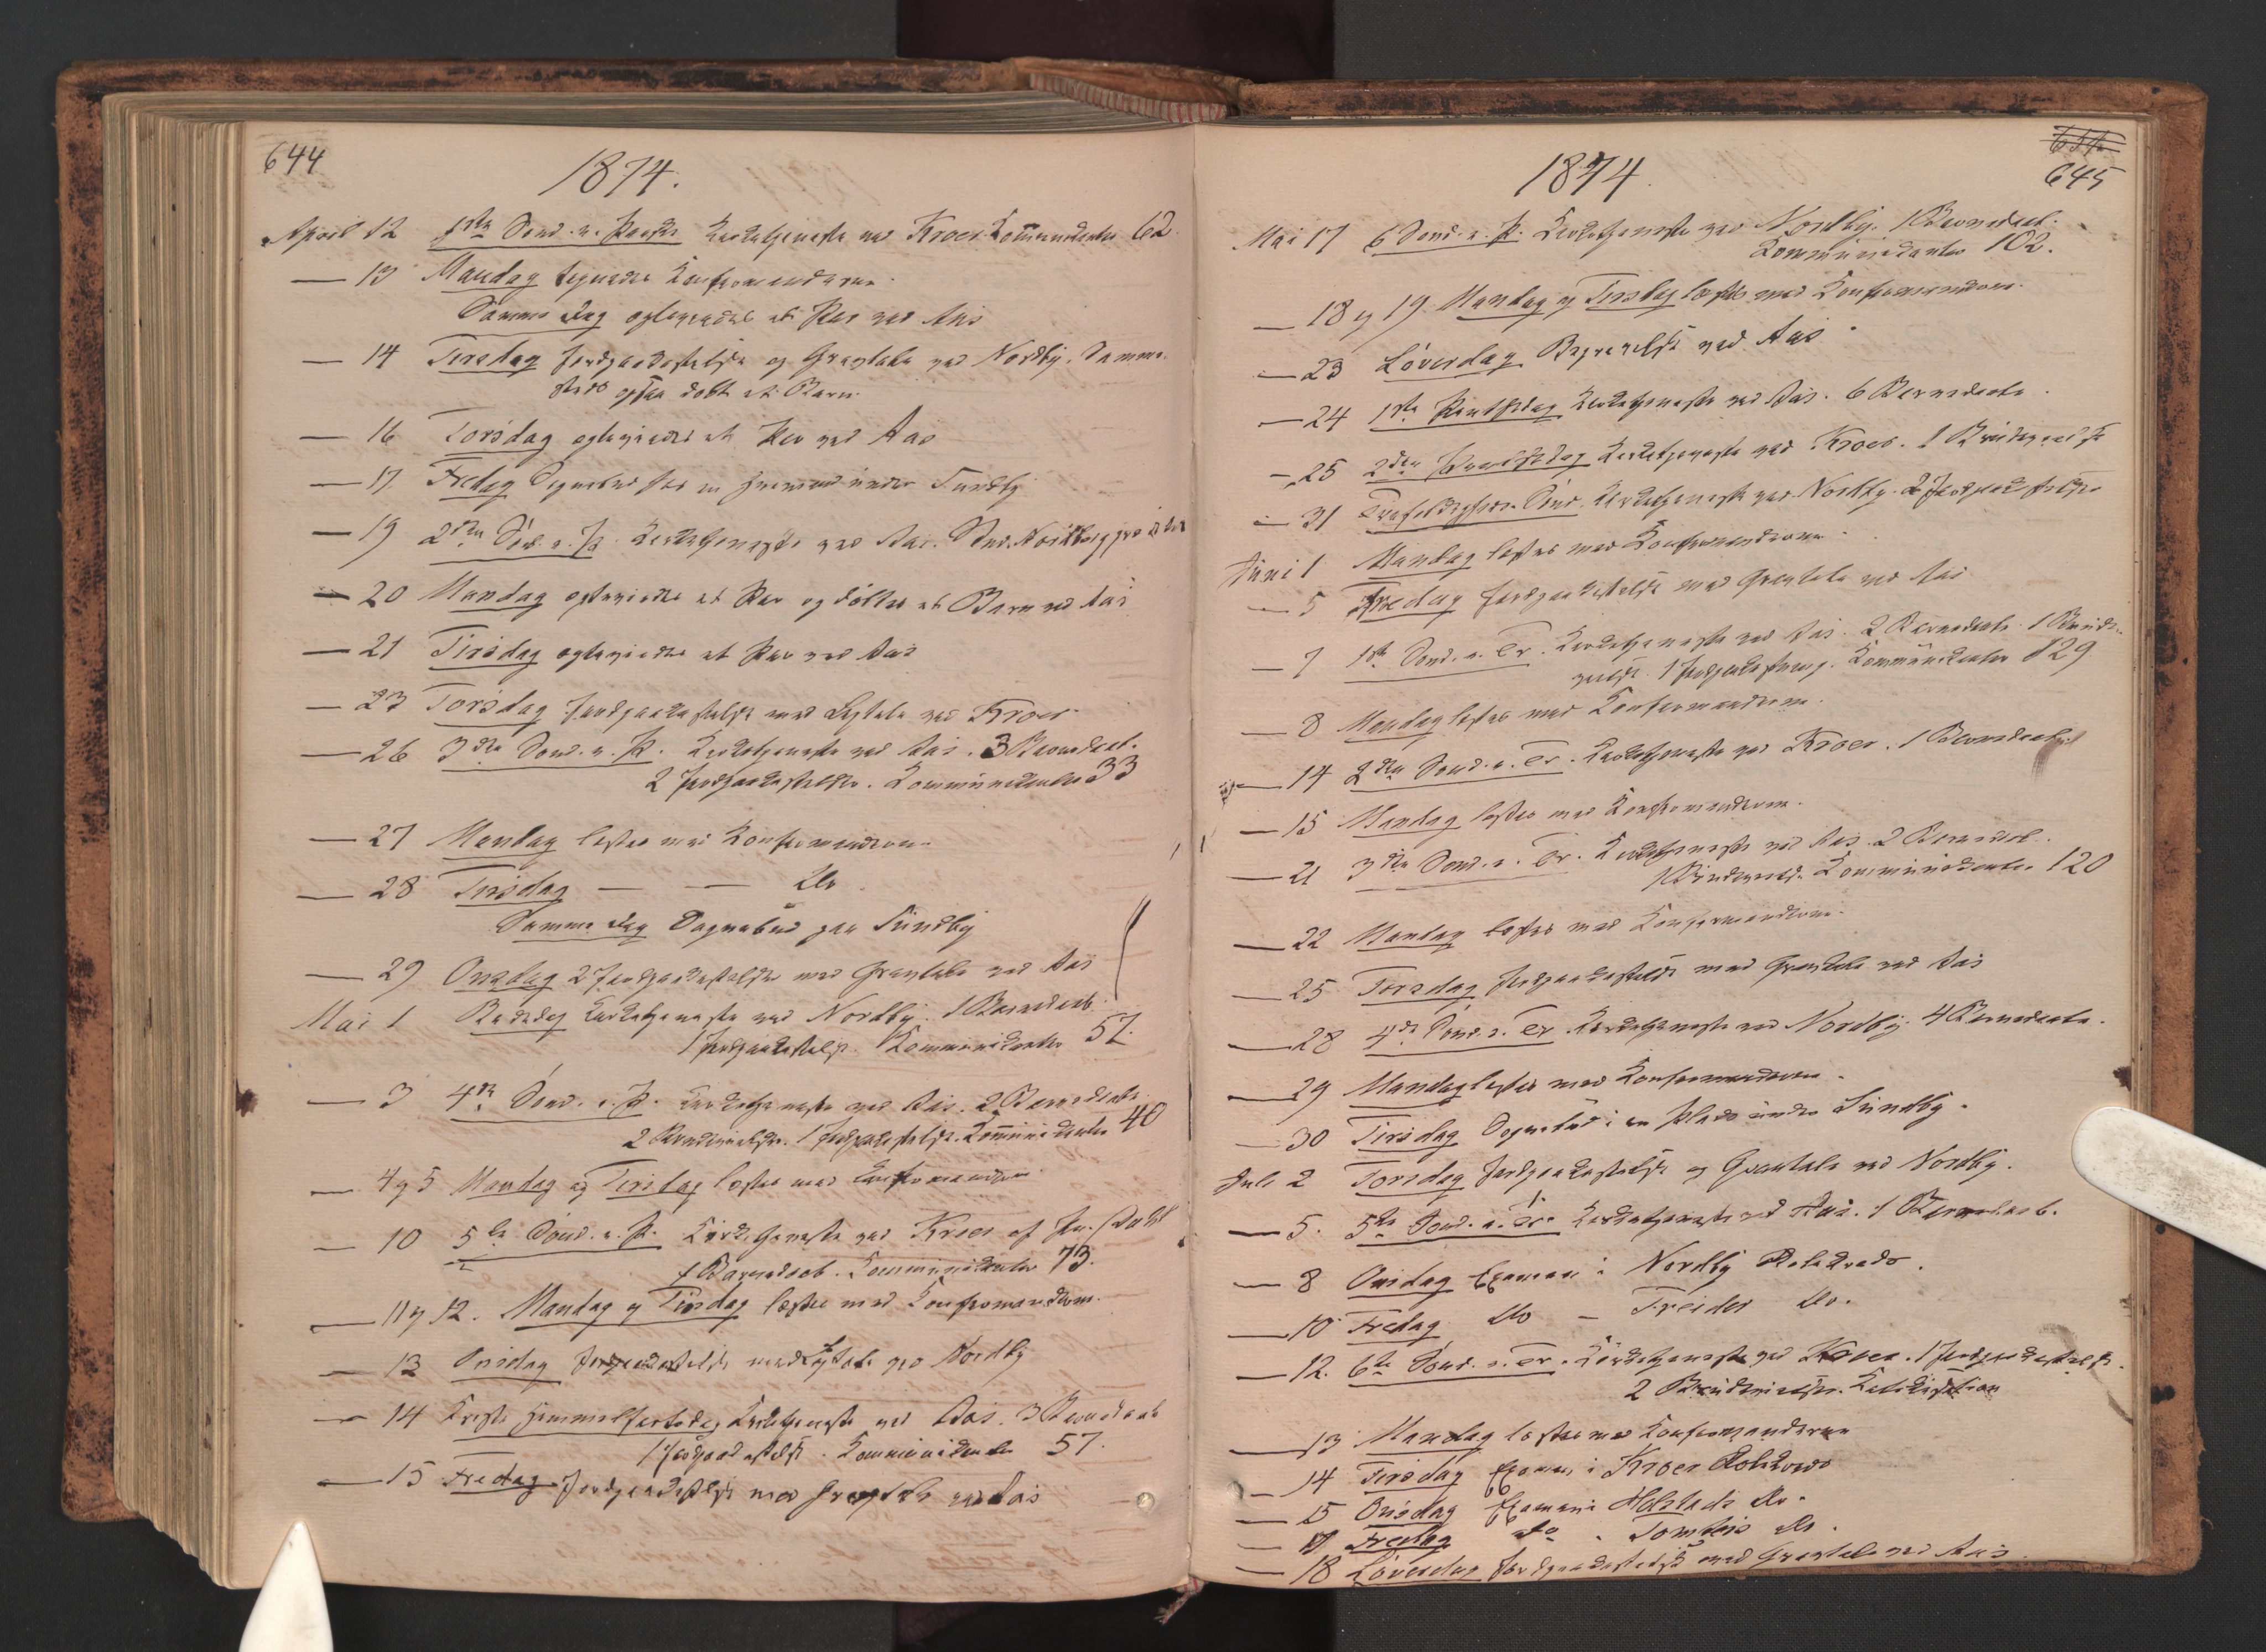 644
1874.
April 12 1ste Sønd. e. Paaske Kirketjeneste ved Kroer Kommunikanter 62.
— 13 Mandag Konfirmanderne.
Samme Dag ægteviedes et Par ved Aas
— 14 Tirsdag Jordpaakastelse og Gravtale ved Nordby. Samme-
steds ogsaa døbt et Barn.
— 16 Torsdag ægteviedes et Par ved Aas
— 17 Fredag Sognebud hos en under Sundby
— 19 2den Sønd. e. P. Kirketjeneste ved Aas.
— 20 Mandag ægteviedes et Par og døbtes et Barn ved Aas
— 21 Tirsdag ægteviedes et Par ved Aas
— 23 Torsdag Jordpaakastelse med Ligtale ved Kroer
— 26 3die Sønd. e. P. Kirketjeneste ved Aas. 3 Barnedaab.
2 Jordpaakastelser. Kommunikanter 33
— 27 Mandag læstes med Konfirmanderne
— 28 Tirsdag — — Do
Samme Dag Sognebud paa Sundby
— 29 Onsdag 2 Jordpaakastelser med Gravtale ved Aas
Mai 1 Bededag Kirketjeneste ved Nordby. 1 Barnedaab.
1 Jordpaakastelse. Kommunikanter 57.
— 3 4de Sønd. e. P. Kirketjeneste ved Aas. 2 Barnedaab.
2 Brudevielser. 1 Jordpaakastelse. Kommunikanter 40
— 4 og 5 Mandag og Tirsdag læstes med Konfirmanderne
— 10 5te Sønd. e. P. Kirketjeneste ved Kroer af
1 Barnedaab. Kommunikanter 73.
— 11 og 12. Mandag og Tirsdag læstes med Konfirmanderne.
— 13 Onsdag Jordpaakastelse med Ligtale ved Nordby
— 14 Kristi Himmelfartsdag Kirketjeneste ved Aas. 3 Barnedaab
1 Jordpaakastelse. Kommunikanter 57.
— 15 Fredag Jordpaakastelse med Gravtale ved Aas
645
1874.
Mai 17 6 Sønd. e. P. Kirketjeneste ved Nordby. 1 Barnedaab.
Kommunikanter 102.
— 18 og 19 Mandag og Tirsdag læstes med Konfirmanderne.
— 23 Løverdag Begravelse ved Aas.
— 24 1ste Pintsedag Kirketjeneste ved Aas. 6 Barnedaab.
— 25 2den Pintsedag Kirketjeneste ved Kroer. 1 Brudevielse
— 31 Trefoldigheds Sønd. Kirketjeneste ved Nordby. 2 Jordpaakastelser
Juni 1 Mandag læstes med Konfirmanderne.
— 5 Fredag Jordpaakastelse med Gravtale ved Aas
— 7 1ste Sønd. e. Tr. Kirketjeneste ved Aas. 2 Barnedaab. 1 Brude-
vielse. 1 Jordpaakastelse. Kommunikanter 129
— 8 Mandag læstes med Konfirmanderne.
— 14 2den Sønd. e. Tr. Kirketjeneste ved Kroer. 1 Barnedaab.
— 15 Mandag læstes med Konfirmanderne.
— 21 3die Sønd. e. Tr. Kirketjeneste ved Aas. 2 Barnedaab.
1 Brudevielse. Kommunikanter 120
— 22 Mandag læstes med Konfirmanderne.
— 25 Torsdag Jordpaakastelse med Gravtale ved Aas
— 28 4de Sønd. e. Tr. Kirketjeneste ved Nordby. 4 Barnedaab.
— 29 Mandag læstes med Konfirmanderne.
— 30 Tirsdag Sognebud i en Plads under Sundby.
Juli 2 Torsdag Jordpaakastelse og Gravtale ved Nordby.
— 5. 5te Sønd. e. Tr. Kirketjeneste ved Aas. 1 Barnedaab.
— 8 Onsdag Examen i Nordby Rolekreds.
— 10 Fredag Do — Do.
— 12. 6te Sønd. e. Tr. Kirketjeneste ved Kroer. 1 Jordpaakastelse.
2 Brudevielser. Katekisation
— 13 Mandag læstes med Konfirmanderne
— 14 Tirsdag Examen i Kroer Rolekreds
— 15 Onsdag Examen i Holstads Do.
— 17 Fredag Do. Do.
— 18 Løverdag Jordpaakastelse med Gravtale ved Aas.